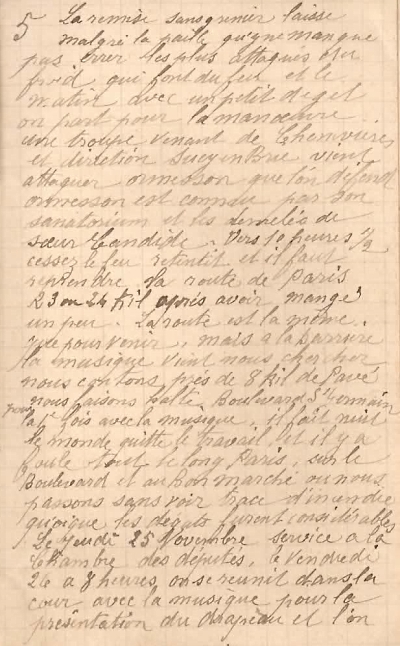 5 La remise sans grenier laisse
malgré la paille qu'y ne manque
pas errer les plus attaqués du
froid qui font du feu et le
matin avec un petit degel
on part pour la manoeuvre.
une troupe venant de Chenvières
et direction Sucy en Brie vient
attaquer ormesson que l'on défend
ormesson est connue par son
sanatorium et les demelés de
sœur Candide. Vers 10 heures 1/2
cessez le feu retentit et il faut
reprendre la route de Paris
23 ou 24 kil après avoir mangé
un peu. La route est la même
que pour venir, mais a la barriere
la musique vient nous chercher
nous contons près de 8 kil de Pavé
nous faisons halte Boulevard St Germain
pour la 1e fois avec la musique, il fait nuit
le monde quitte le travail et il y a
foule tout le long Paris, sur le
Boulevard et au bon marché ou nous
passons sans voir trace d'incendie
quoique les dégats furent considérables
Le Jeudi 25 Novembre service a la
Chambre des députés, le Vendredi
26 a 8 heures on se reunit dans la
cour avec la musique pour la
présentation du drapeau et l'on